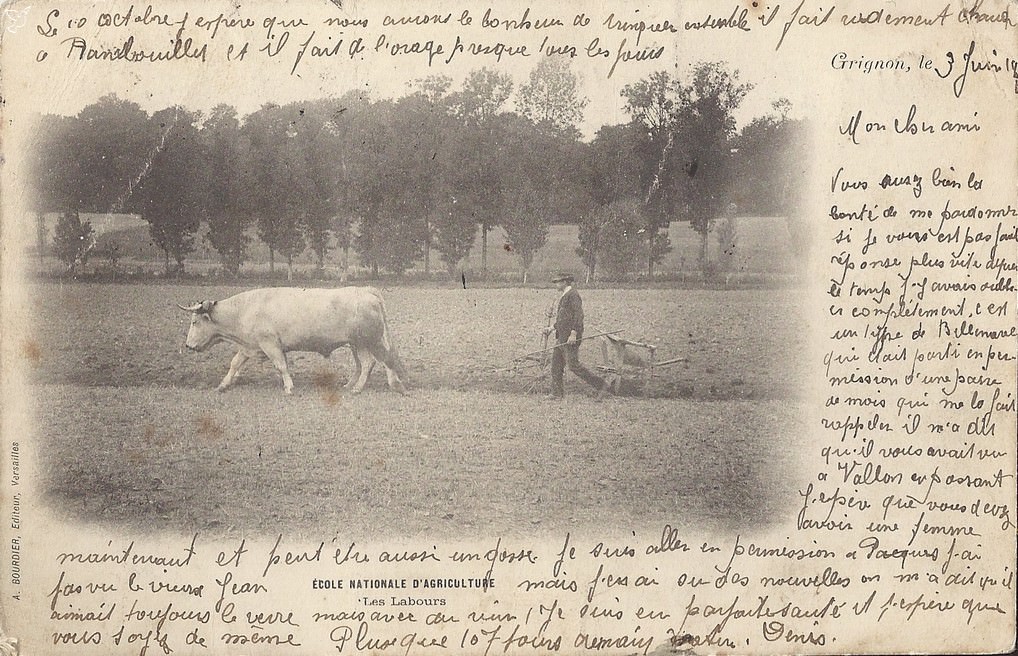 Le 10 octobre j'espère que nous aurons le bonheur de trinquer ensemble il fait rudement chaud
a Rambouillet et il fait de l'orage presque tous les jours
Grignon, le 3 Juin
Mon cher ami
Vous aurez bien la
bonté de me pardonner
si je vous est pas fait
réponse plus vite depuis
le temps j'y avais oubli
er complètement, c'est
un type de Bellenave
qui était parti en per-
mission d'une paire
de mois qui me la fait
rappeler il m'a dit
qu'il vous avait vu
a Vallon en passant
J'espère que vous devez
avoir une femme
maintenant et peut être aussi un gosse. Je suis aller en permission a Pacques j'ai
pas vu le vieux Jean mais j'en ai su des nouvelles on m'a dit qu'il
ÉCOLE NATIONALE D'AGRICULTURE
Les Labours
aimait toujours le verre mais avec du vin, Je suis en parfaite santé et j'espère que
vous soyez de même Plus que 107 jours demain matin. Denis.
A. BOURDIER, Editeur, Versailles